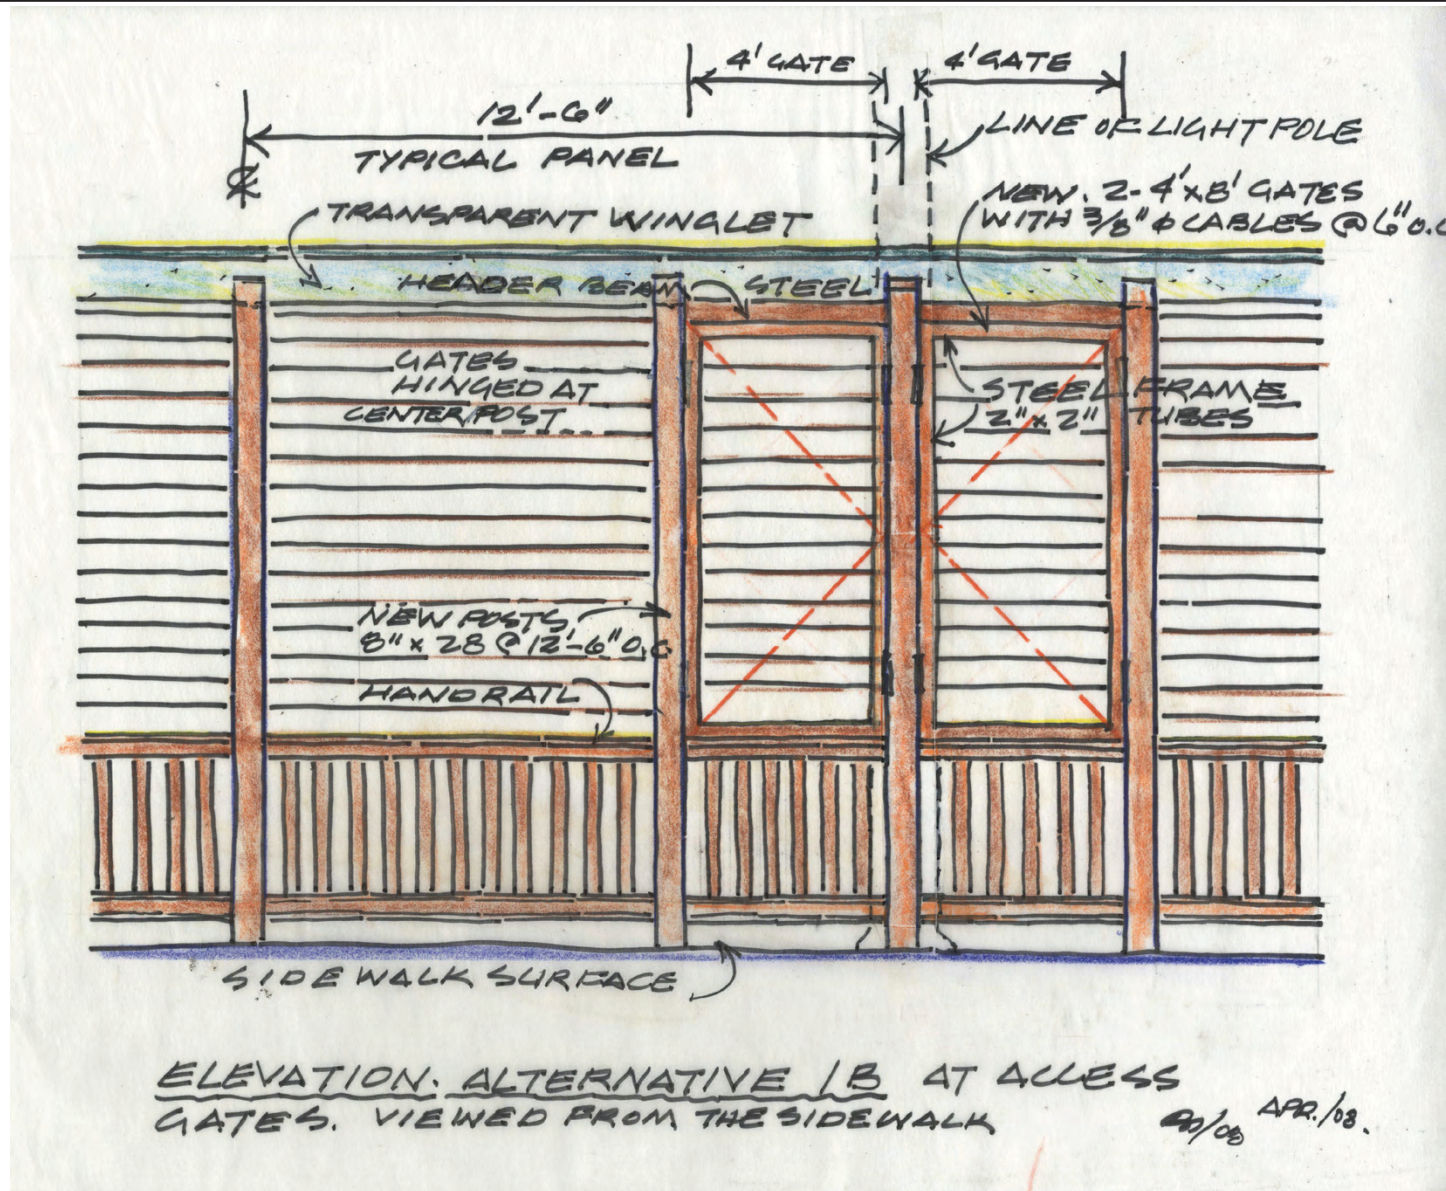 4' GATE
4' GATE
12'-6"
TYPICAL PANEL
LINE OF LIGHT POLE
NEW. 2-4'x8' GATES
WITH 3/8" ϕ CABLES @ 6" O.C
TRANSPARENT WINGLET
HEADER BEAM STEEL
GATES
HINGED AT
CENTER POST
STEEL FRAME
2" x 2" TUBES
NEW POSTS
8" x 28 @ 12'-6" O.C
HANDRAIL
SIDEWALK SURFACE
ELEVATION. ALTERNATIVE 1B AT ACCESS
GATES. VIEWED FROM THE SIDEWALK
/08 APR./08.